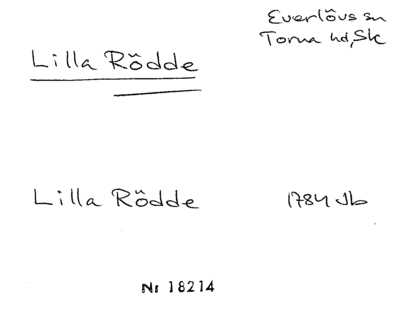 Everlövs sn
Torna hd, Sk
Lilla Rödde
Lilla Rödde 1784 Jb
Nr 18214